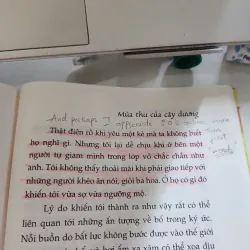 And perhaps I appreciate
Mùa thu của cây dương
Thật điên rồ khi yêu một kẻ mà ta không biết
họ nghĩ gì. Nhưng tôi lại dễ chịu khi ở bên một
người tự giam mình trong lớp vỏ chắc chắn như
anh. Tôi không thấy thoải mái khi phải giao tiếp với
những người khéo ăn nói, giỏi ba hoa. Ở họ có gì đó
khiến tôi vừa sợ vừa ngưỡng mộ.
Lý do khiến tôi thành ra như vậy rất có thể
liên quan tới những ấn tượng về bố trong ký ức.
Nỗi buồn do bất lực không bước được vào thế giới